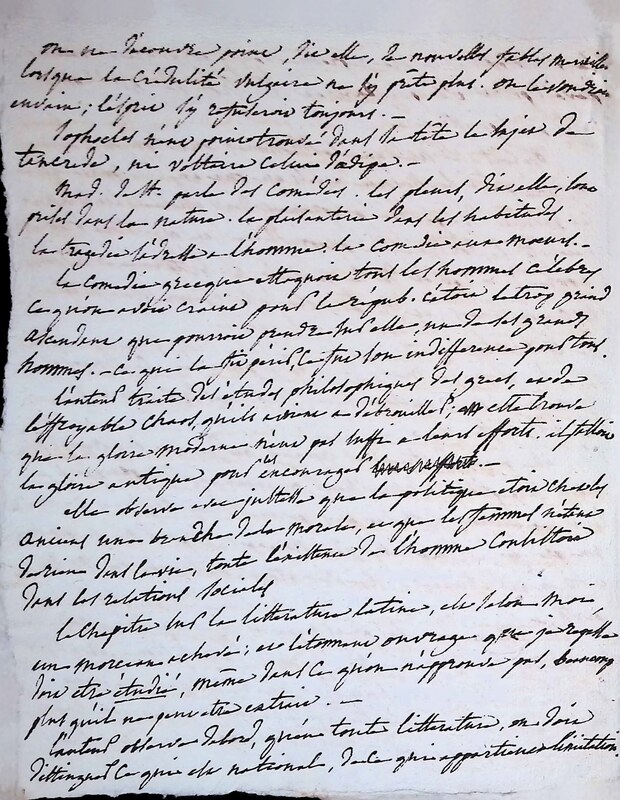 on ne découvre point, dit elle, de nouvelles fables
lorsque la crédulité vulgaire ne s'y prête plus. on le voudroit
envain; l'esprit s'y refuseroit toujours. —
Sophocles n'eut point trouvé dans sa tête le sujet de
tancrede, ni voltaire celui d'œdipe. —
Mad. de St. parle des comédies. les pleurs, dit elle, sont
prises dans la nature. la plaisanterie dans les habitudes.
la tragédie s'adresse a l'homme. la comédie aux mœurs. —
la comédie grecque attaquoit tous les hommes célèbres
ce qu'on avoit craint pour la repub. c'étoit le trop grand
ascendant que pourroit prendre sur elle, un de ses grands
hommes. — ce qui la fit périr, ce fut son indifférence pour tous.
l'auteur traite des études philosophiques des grecs, et de
l'effroyable chaos, qu'ils avoient a débrouiller; elle trouve
que la gloire moderne n'eut pas suffi a leurs efforts. il falloit
la gloire antique pour les encourager. —
elle observe avec justesse que la politique étoit chez les
anciens une branche de la morale, et que les femmes n'étant
de rien dans la vie, toute l'existence de l'homme consistoit
dans les relations sociales
le chapitre sur la litterature latine, est selon moi,
un morceau achevé; et l'étonnant ouvrage que je
doit etre étudié, même dans ce qu'on n'approuve pas, beaucoup
plus qu'il ne peut etre extrait. —
l'auteur observe d'abord, qu'en toute litterature, on doit
distinguer ce qui est national, de ce qui appartient a l'imitation.